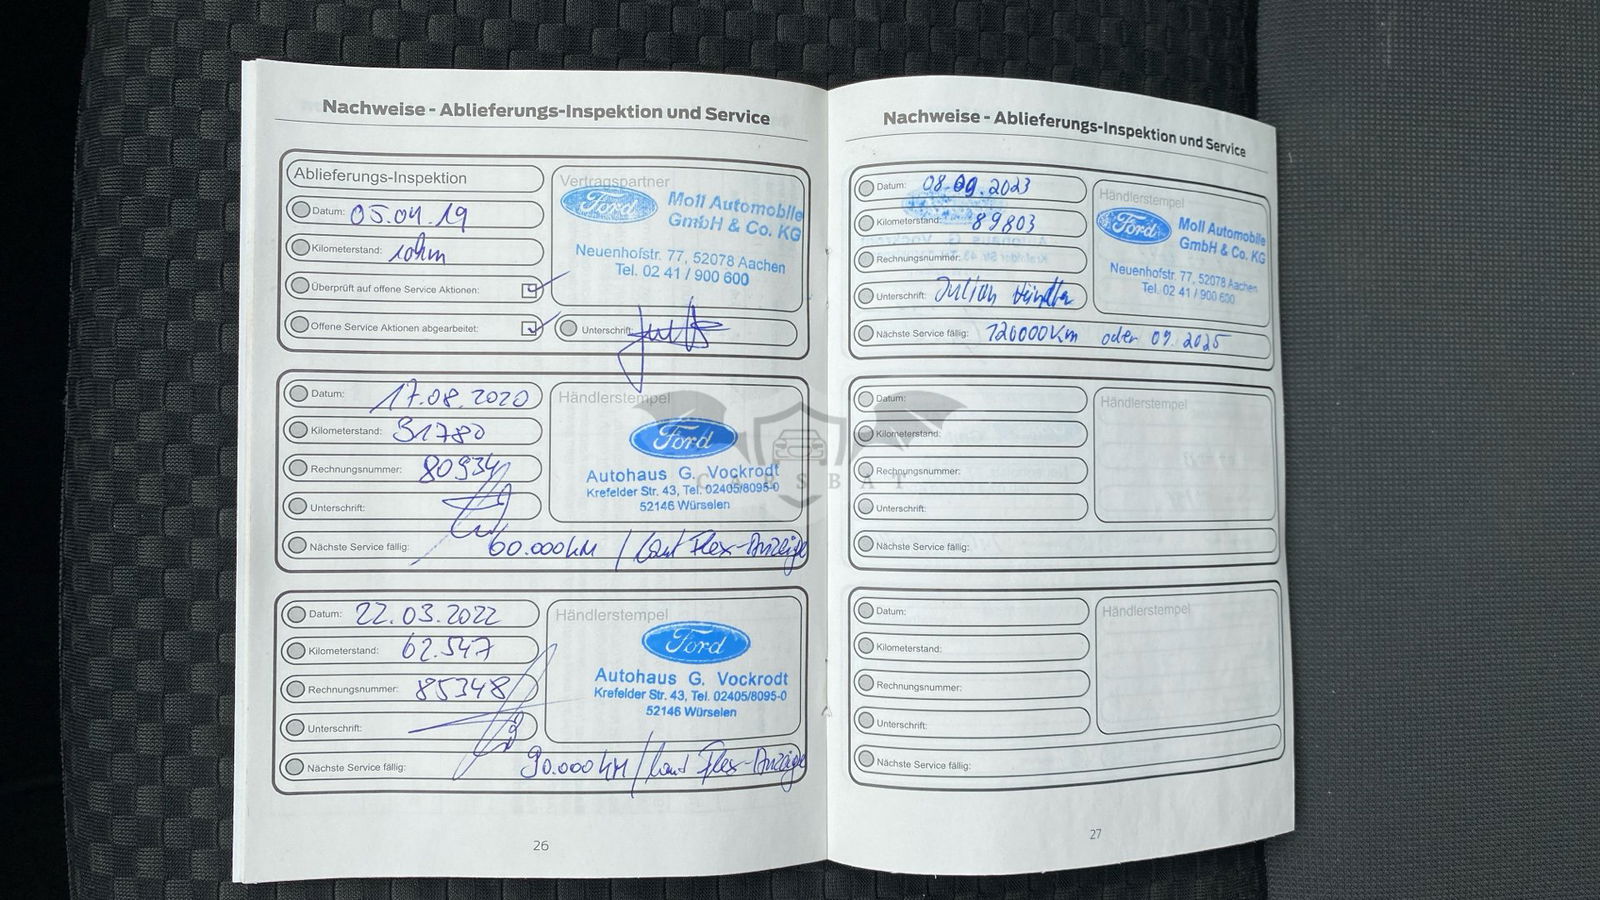 Nachweise - Ablieferungs-Inspektion und Service
Ablieferungs-Inspektion
Datum: 05.04.19
Kilometerstand: 10km
Überprüft auf offene Service Aktionen:
Offene Service Aktionen abgearbeitet:
Vertragspartner
Ford
Moll Automobile
GmbH & Co. KG
Neuenhofstr. 77, 52078 Aachen
Tel. 02 41 / 900 600
Unterschrift:
Datum: 17.08.2020
Kilometerstand: 31780
Rechnungsnummer: 80934
Unterschrift:
Nächste Service fällig: 60.000KM / laut Flex-Anzeige
Händlerstempel
Ford
Autohaus G. Vockrodt
Krefelder Str. 43, Tel. 02405/8095-0
52146 Würselen
Datum: 22.03.2022
Kilometerstand: 62.547
Rechnungsnummer: 85348
Unterschrift:
Nächste Service fällig: 90.000KM / laut Flex-Anzeige
Händlerstempel
Ford
Autohaus G. Vockrodt
Krefelder Str. 43, Tel. 02405/8095-0
52146 Würselen
26
Nachweise - Ablieferungs-Inspektion und Service
Datum: 08.09.2023
Kilometerstand: 89803
Rechnungsnummer:
Unterschrift: Julian
Nächste Service fällig: 120000Km oder 09.2025
Händlerstempel
Ford
Moll Automobile
GmbH & Co. KG
Neuenhofstr. 77, 52078 Aachen
Tel. 02 41 / 900 600
Datum:
Kilometerstand:
Rechnungsnummer:
Unterschrift:
Nächste Service fällig:
Händlerstempel
Datum:
Kilometerstand:
Rechnungsnummer:
Unterschrift:
Nächste Service fällig:
Händlerstempel
27
CARSBAT